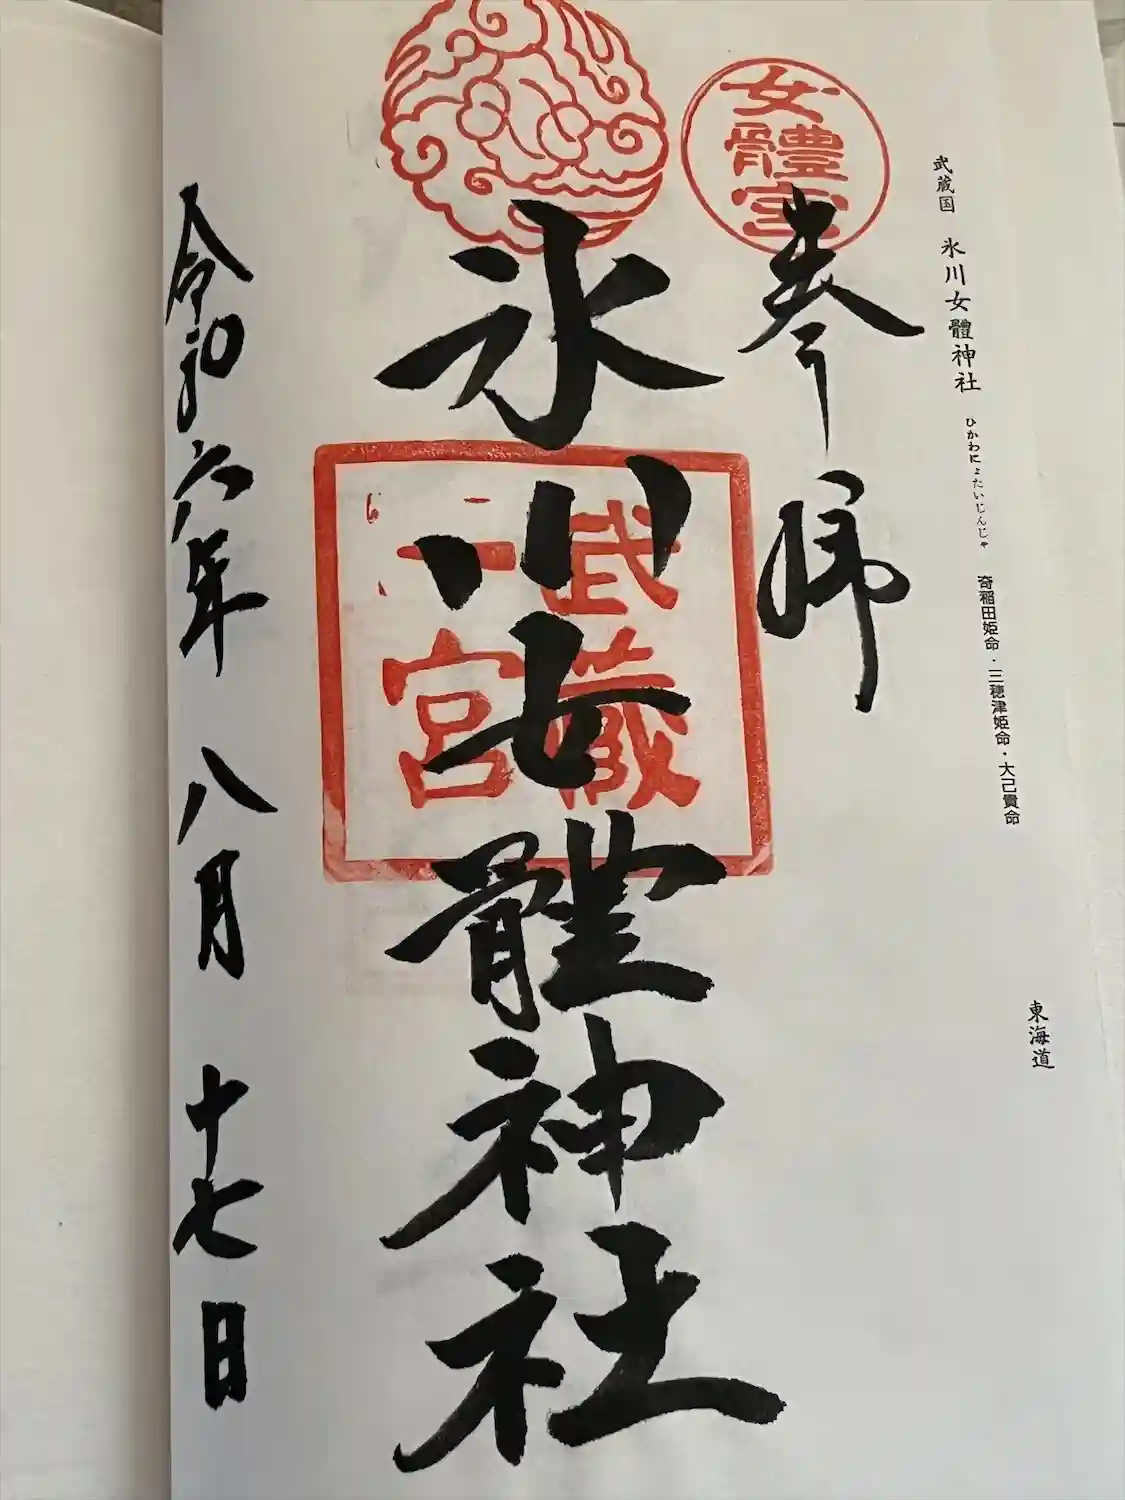 武蔵国 氷川女體神社 ひかわにょたいじんじゃ 奇稲田姫命・三穂津姫命・大己貴命
東海道
女體宮
参拝
氷川女體神社
武蔵
一宮
令和六年 八月 十七日